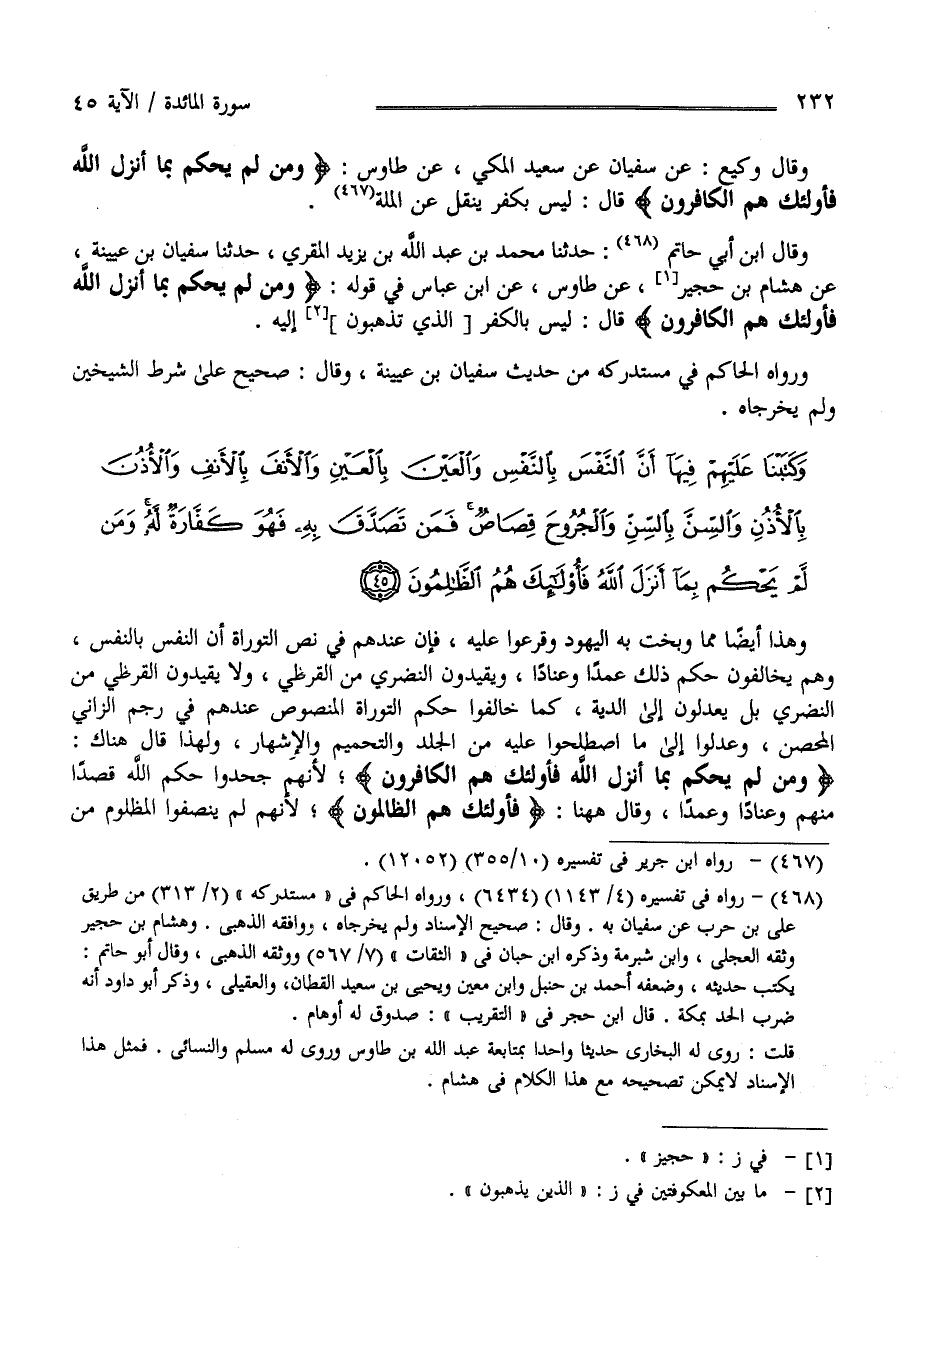 ٢٣٢ سورة المائدة / الآية ٤٥
وقال وكيع : عن سفيان عن سعيد المكي ، عن طاوس : ﴿ ومن لم يحكم بما أنزل اللَّه
فأولئك هم الكافرون ﴾ قال : ليس بكفر ينقل عن الملة(٤٦٧) .
وقال ابن أبي حاتم (٤٦٨) : حدثنا محمد بن عبد اللَّه بن يزيد المقري ، حدثنا سفيان بن عيينة ،
عن هشام بن حجير[١] ، عن طاوس ، عن ابن عباس في قوله : ﴿ ومن لم يحكم بما أنزل اللَّه
فأولئك هم الكافرون ﴾ قال : ليس بالكفر [ الذي تذهبون ][٢] إليه .
ورواه الحاكم في مستدركه من حديث سفيان بن عيينة ، وقال : صحيح علىٰ شرط الشيخين
ولم يخرجاه .
وَكَتَبْنَا عَلَيْهِمْ فِيهَآ أَنَّ ٱلنَّفْسَ بِٱلنَّفْسِ وَٱلْعَيْنَ بِٱلْعَيْنِ وَٱلْأَنفَ بِٱلْأَنفِ وَٱلْأُذُنَ
بِٱلْأُذُنِ وَٱلسِّنَّ بِٱلسِّنِّ وَٱلْجُرُوحَ قِصَاصٌ ۚ فَمَن تَصَدَّقَ بِهِۦ فَهُوَ كَفَّارَةٌ لَّهُۥ ۚ وَمَن
لَّمْ يَحْكُم بِمَآ أَنزَلَ ٱللَّهُ فَأُو۟لَـٰٓئِكَ هُمُ ٱلظَّـٰلِمُونَ ٤٥
وهذا أيضًا مما وبخت به اليهود وقرعوا عليه ، فإن عندهم في نص التوراة أن النفس بالنفس ،
وهم يخالفون حكم ذلك عمدًا وعنادًا ، ويقيدون النضري من القرظي ، ولا يقيدون القرظي من
النضري بل يعدلون إلىٰ الدية ، كما خالفوا حكم التوراة المنصوص عندهم في رجم الزاني
المحصن ، وعدلوا إلىٰ ما اصطلحوا عليه من الجلد والتحميم والإشهار ، ولهذا قال هناك :
﴿ ومن لم يحكم بما أنزل اللَّه فأولئك هم الكافرون ﴾ ؛ لأنهم جحدوا حكم اللَّه قصدًا
منهم وعنادًا وعمدًا ، وقال ههنا : ﴿ فأولئك هم الظالمون ﴾ ؛ لأنهم لم ينصفوا المظلوم من
(٤٦٧) - رواه ابن جرير فى تفسيره (٣٥٥/١٠) (١٢٠٥٢) .
(٤٦٨) - رواه فى تفسيره (٤/ ١١٤٣) (٦٤٣٤) ، ورواه الحاكم فى « مستدركه » (٢/ ٣١٣) من طريق
على بن حرب عن سفيان به . وقال : صحيح الإسناد ولم يخرجاه ، ووافقه الذهبى . وهشام بن حجير
وثقه العجلى ، وابن شبرمة وذكره ابن حبان فى « الثقات » (٧/ ٥٦٧) ووثقه الذهبى ، وقال أبو حاتم :
يكتب حديثه ، وضعفه أحمد بن حنبل وابن معين ويحيى بن سعيد القطان، والعقيلى ، وذكر أبو داود أنه
ضرب الحد بمكة . قال ابن حجر فى « التقريب » : صدوق له أوهام .
قلت : روى له البخارى حديثا واحدا بمتابعة عبد الله بن طاوس وروى له مسلم والنسائى . فمثل هذا
الإسناد لايمكن تصحيحه مع هذا الكلام فى هشام .
[١] - في ز : « حجيز » .
[٢] - ما بين المعكوفتين في ز : « الذين يذهبون » .